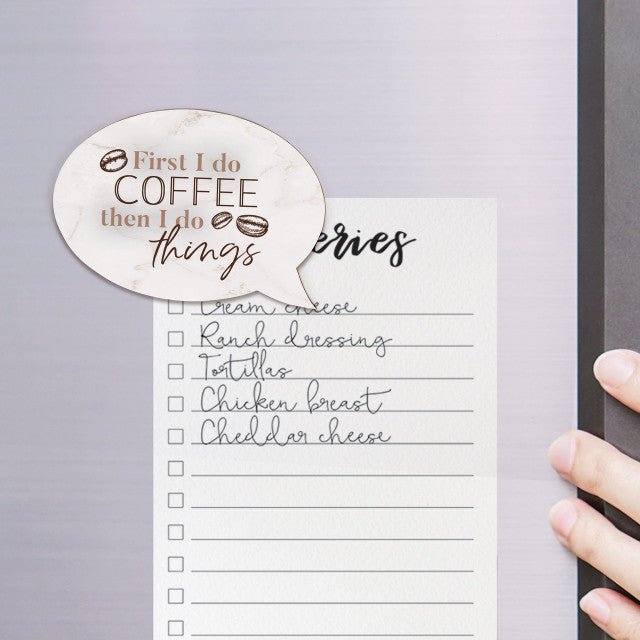 First I do
COFFEE
then I do
things
eries
Cream cheese
Ranch dressing
Tortillas
Chicken breast
Cheddar cheese